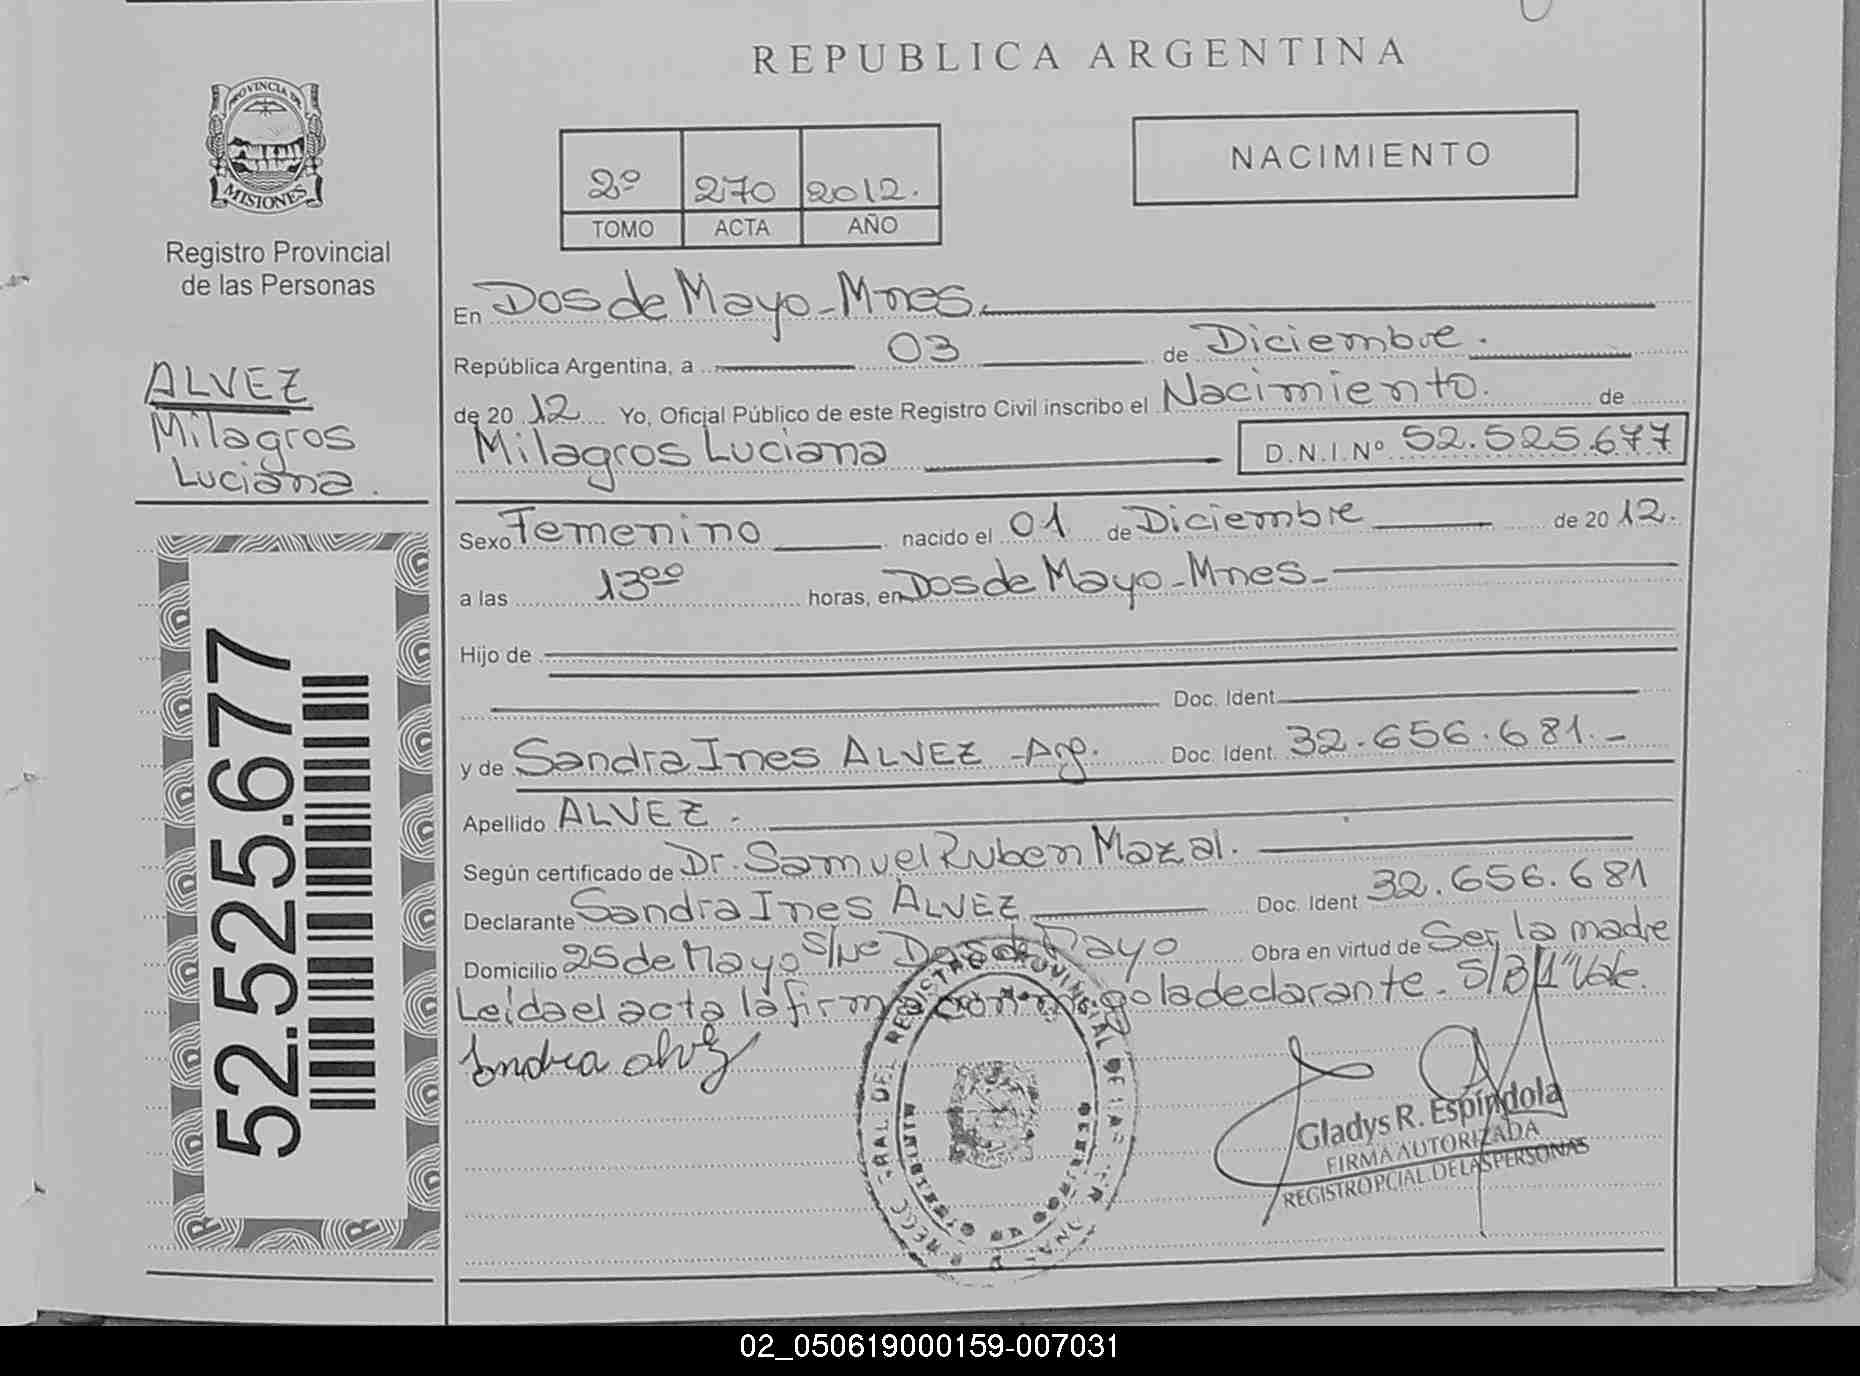 REPUBLICA ARGENTINA
PROVINCIA DE
MISIONES
Registro Provincial
de las Personas
2º 270 2012.
TOMO ACTA AÑO
NACIMIENTO
ALVEZ
Milagros
Luciana.
52.525.677
En Dos de Mayo - Mnes.
República Argentina, a 03 de Diciembre.
de 20 12 Yo, Oficial Público de este Registro Civil inscribo el Nacimiento. de
Milagros Luciana D.N.I. Nº 52.525.677
Sexo Femenino nacido el 01 de Diciembre de 20 12.
a las 13ºº horas, en Dos de Mayo - Mnes -
Hijo de
Doc. Ident.
y de Sandra Ines ALVEZ - Arg. Doc. Ident. 32.656.681.-
Apellido ALVEZ.
Según certificado de Dr. Samuel Ruben Mazal.
Declarante Sandra Ines ALVEZ Doc. Ident 32.656.681
Domicilio 25 de Mayo S/Nº Dos de Mayo Obra en virtud de Ser la madre
Leida el acta la firma conmigo la declarante. S/B/1 "Vale.
Gladys R. Espíndola
FIRMA AUTORIZADA
REGISTRO PCIAL. DE LAS PERSONAS
02_050619000159-007031